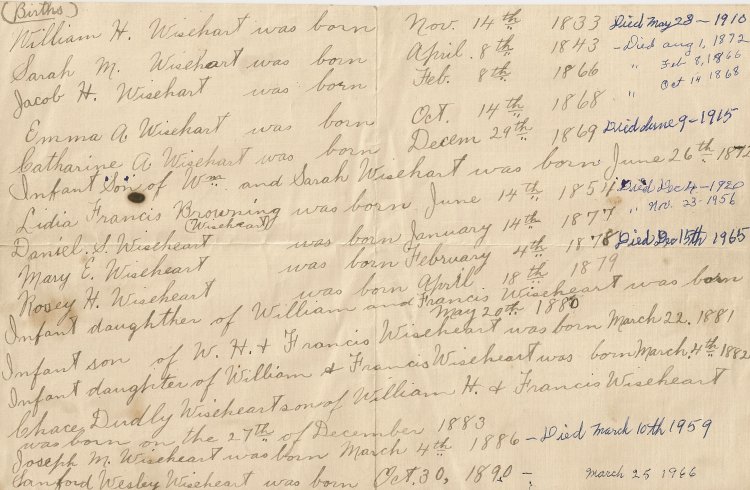 (Births)
William H. Wisehart was born Nov. 14th 1833 Died May 23 - 1910
Sarah M. Wisehart was born April. 8th 1843 - Died Aug 1, 1872
Jacob H. Wisehart was born Feb. 8th 1866 " Feb 8, 1866
Emma A Wisehart was born Oct. 14th 1868 " Oct 14 1868
Catharine A Wisehart was born Decem 29th 1869 Died June 9 - 1915
Infant Son of Wm and Sarah Wisehart was born June 26th 1872
Lidia Francis Browning was born June 14th 1854 Died Dec 4 - 1920
(Wiseheart)
Daniel. S. Wiseheart was born January 14th 1877 " Nov. 23 - 1956
Mary E. Wiseheart was born February 4th 1878 Died Dec 15th 1965
Rosey H. Wiseheart was born April 18th 1879
Infant daughther of William and Francis Wiseheart was born
May 20th 1880
Infant son of W. H. & Francis Wiseheart was born March 22, 1881
Infant daughter of William & Francis Wiseheart was born March. 4th 1882
Chace Dudly Wiseheart son of William H. & Francis Wiseheart
was born on the 27th of December 1883
Joseph M. Wiseheart was born March 4th 1886 - Died March 10th 1959
Sanford Wesley Wiseheart was born Oct. 30, 1890 - March 25 1966